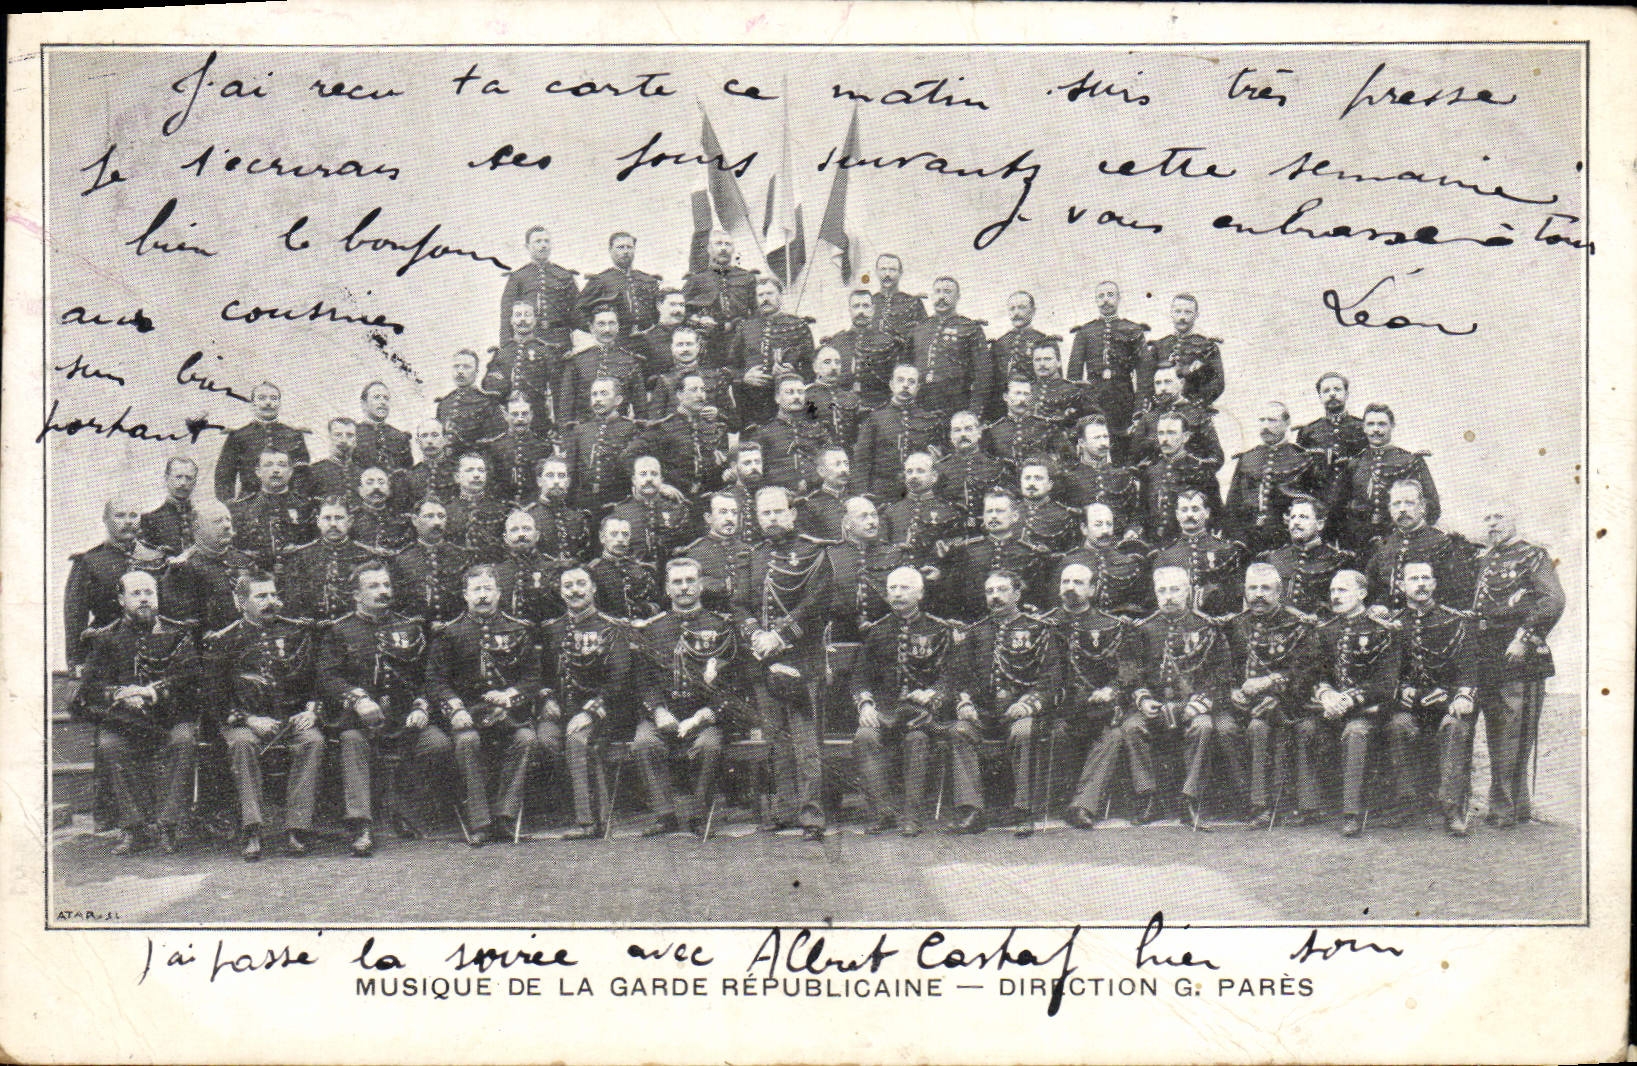 J'ai recu ta carte ce matin suis très pressé
Je t'ecrirais ces jours suivants cette semaine
Je vous embrasse à tous
Léon
bien le bonjour
aux cousines
suis bien
portant
ATAR. SL
J'ai passé la soirée avec Albert hier soir
MUSIQUE DE LA GARDE RÉPUBLICAINE — DIRECTION G. PARÈS